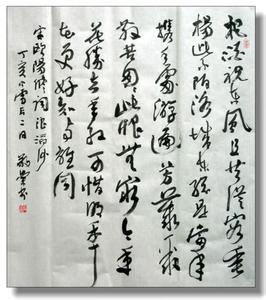 把酒祝东風且共從容垂
楊紫陌洛城东總是當年
携手處游遍芳叢聚
散苦匆匆此恨無窮今年
花勝去年红可惜明年
花更好知與誰同
宋歐陽修詞浪淘沙
丁亥小雪后二日